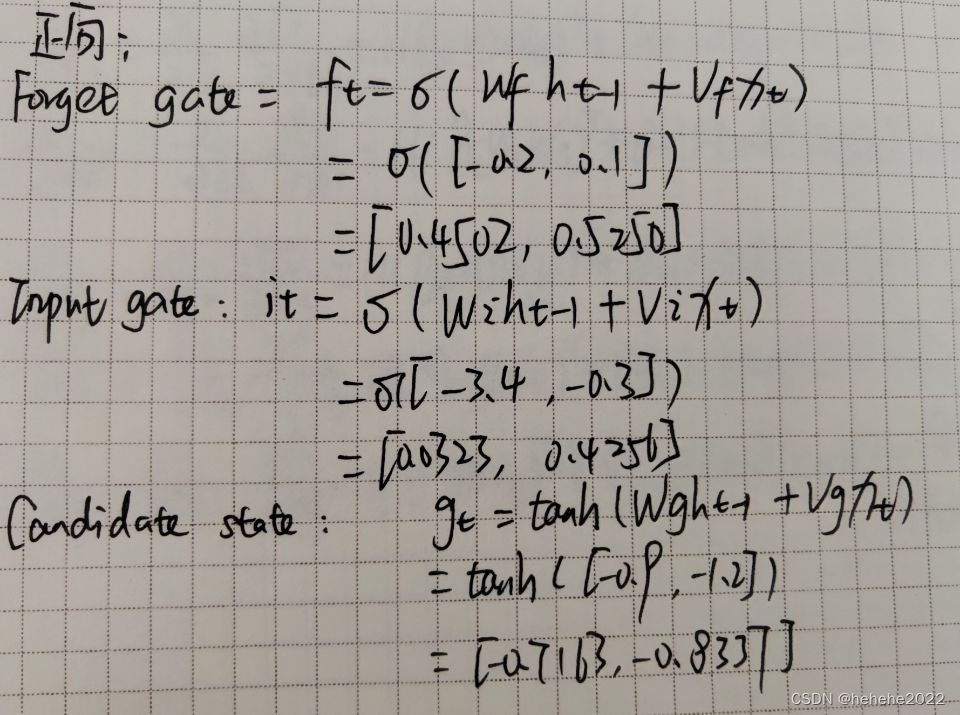 正向:
Forget gate = ft = σ(Wf ht-1 + Vf xt)
= σ([-0.2, 0.1])
= [0.4502, 0.5250]
Input gate: it = σ(Wi ht-1 + Vi xt)
= σ([-3.4, -0.3])
= [0.0323, 0.4256]
Candidate state: gt = tanh(Wg ht-1 + Vg xt)
= tanh([-0.9, -1.2])
= [-0.7163, -0.8337]
CSDN @hehehe2022